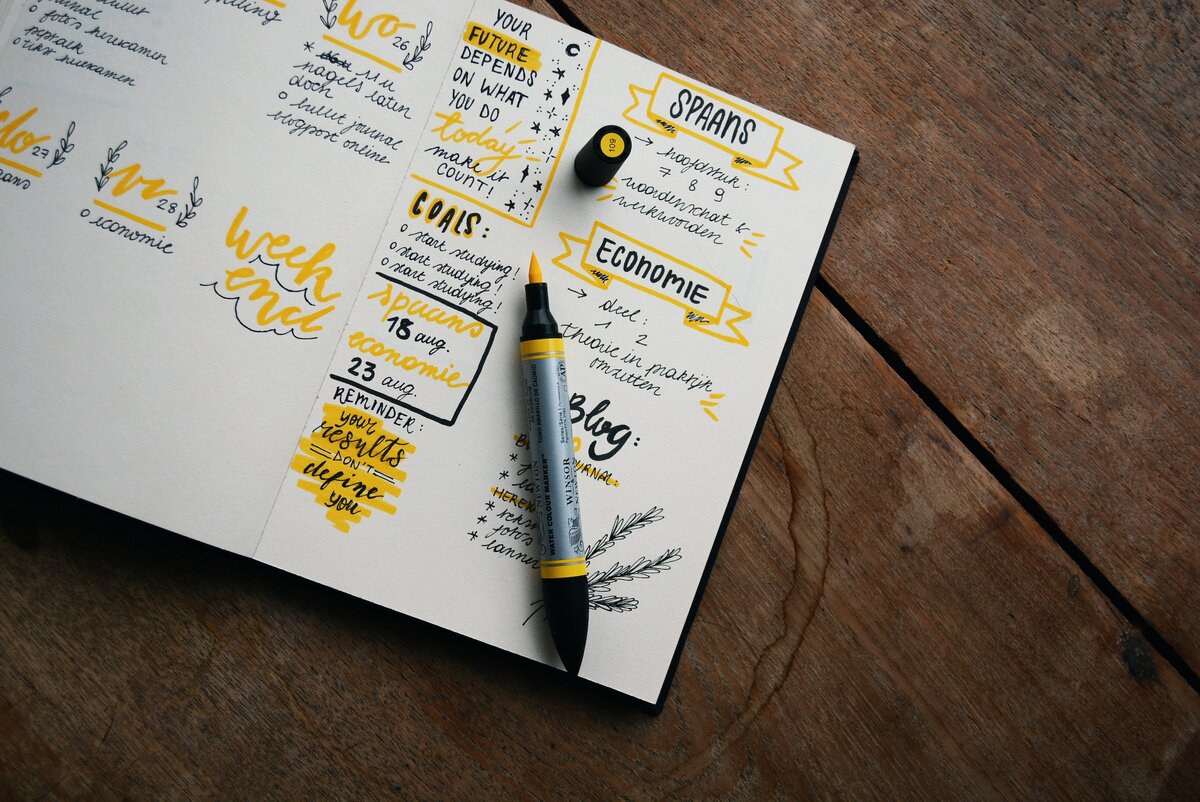 journal
o foto's herexamen
o tekst herexamen
Wo 26
* 11u
nagels laten
doen
o bullet journal
blogpost online
do 27
vr 28
o economie
Week
end
YOUR
FUTURE
DEPENDS
ON WHAT
YOU DO
today
make it
COUNT!
GOALS:
o start studying!
o start studying!
o start studying!
spaans
18 aug.
economie
23 aug.
REMINDER:
your
results
DON'T
define
you
SPAANS
→ hoofdstuk:
7 8 9
woordenschat &
werkwoorden
ECONOMIE
→ deel:
1 2
theorie in praktijk
omzetten
Blog:
* foto's
109
WATER COLOUR MARKER™
WINSOR
NEWTON